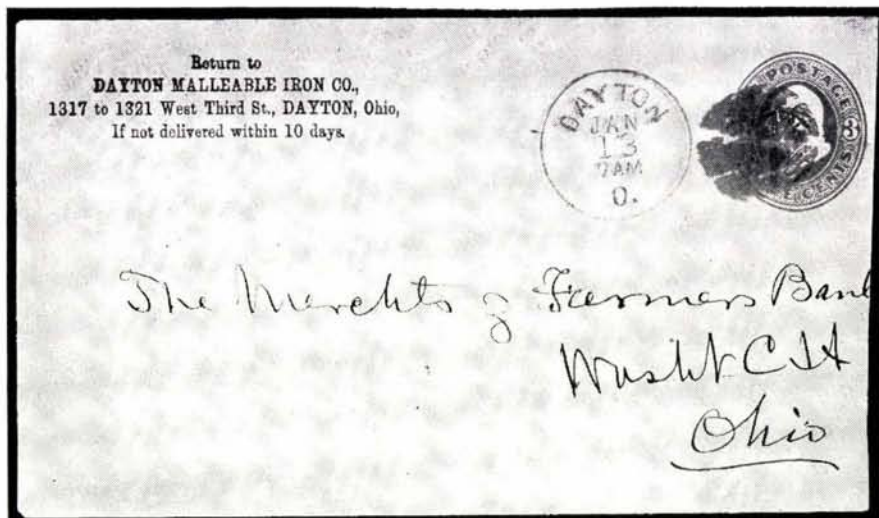 Return to
DAYTON MALLEABLE IRON CO.,
1317 to 1321 West Third St., DAYTON, Ohio,
If not delivered within 10 days.
DAYTON
JAN
13
7AM
O.
POSTAGE
3
E CENTS
The Merchts & Farmers Bank
Washt C H
Ohio